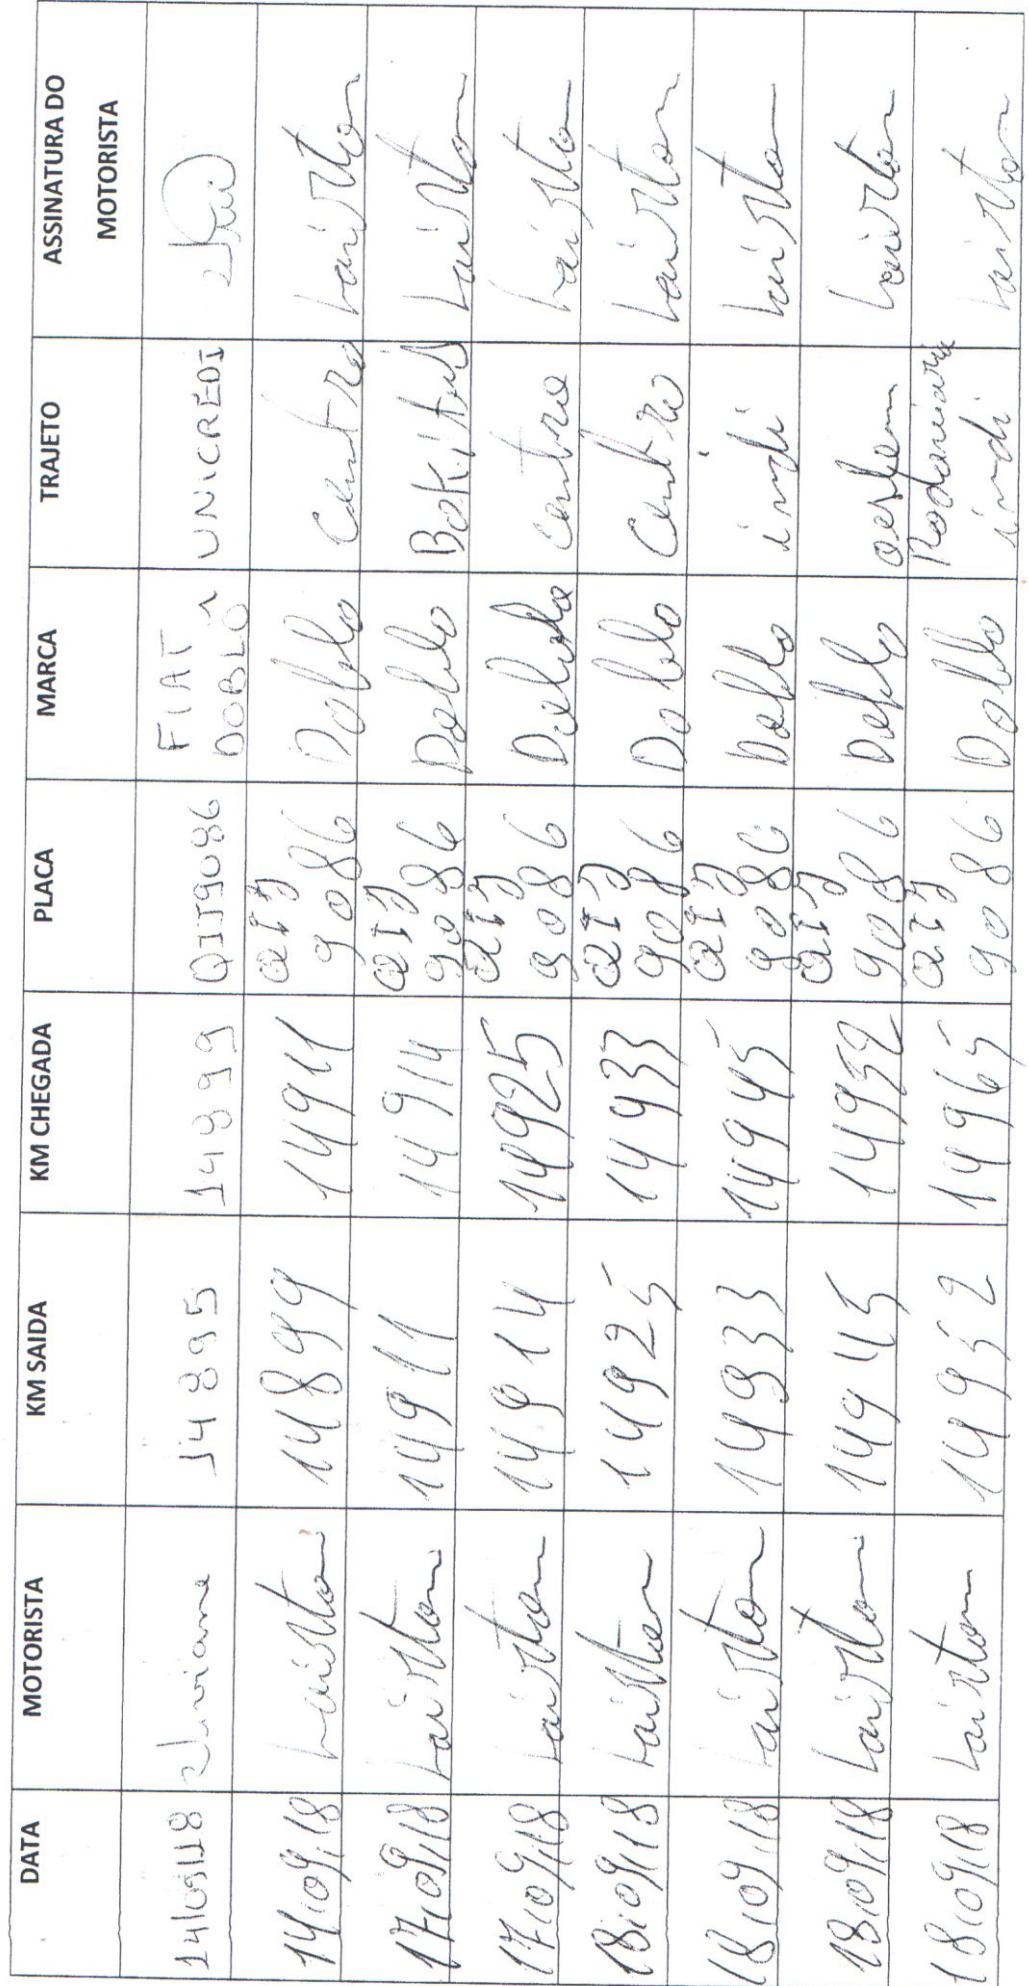 DATA MOTORISTA KM SAIDA KM CHEGADA PLACA MARCA TRAJETO ASSINATURA DO MOTORISTA
14/09/18 14895 14899 QIJ9086 FIAT DOBLO UNICREDI
14/09/18 Lairton 14899 14911 QIJ 9086 Doblo Centro Lairton
17/09/18 Lairton 14911 14914 QIJ 9086 Doblo Lairton
17/09/18 Lairton 14914 14925 QIJ 9086 Doblo Centro Lairton
18/09/18 Lairton 14925 14933 QIJ 9086 Doblo Centro Lairton
18/09/18 Lairton 14933 14945 QIJ 9086 Doblo indi Lairton
18/09/18 Lairton 14945 14952 QIJ 9086 Doblo Lairton
18/09/18 Lairton 14952 14965 QIJ 9086 Doblo indi Lairton